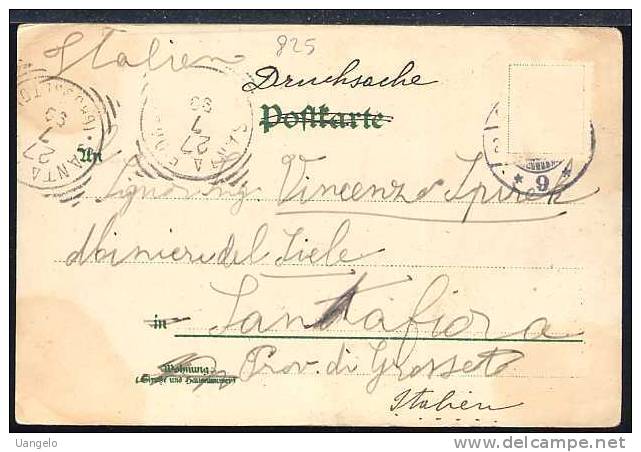 825
Italien
Drucksache
Postkarte
SANTA
27
7
99
(GROSSETO)
SANTA
27
7
99
* 9 *
An
Signor Ing. Vincenzo Spirek
Miniere del Siele
in Santafiora
Wohnung
(Straße und Hausnummer)
Prov. di Grosseto
Italien
Uangelo
delcampe.net